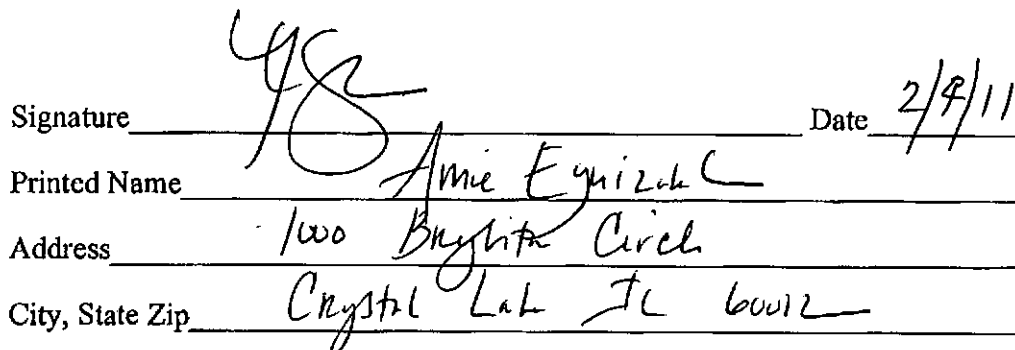 Signature Date 2/4/11
Printed Name Amie
Address 1000 Circle
City, State Zip Crystal Lake IL 60012